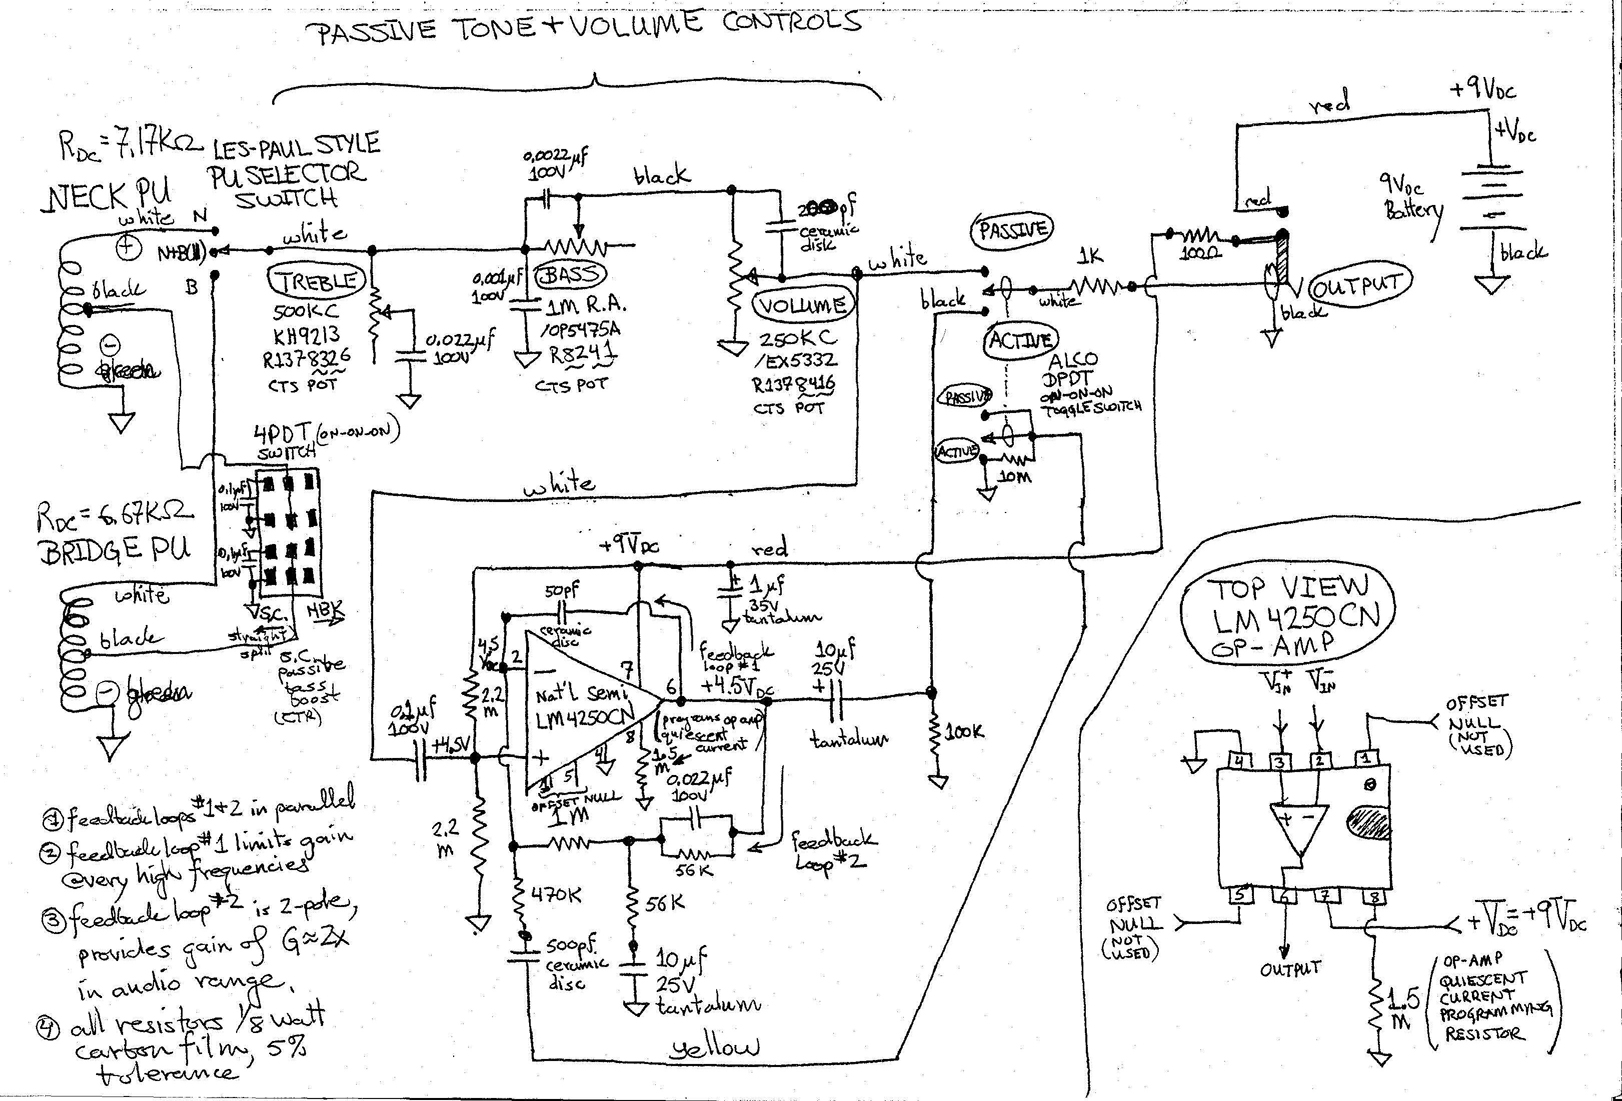 PASSIVE TONE + VOLUME CONTROLS
RDC = 7.17KΩ
NECK PU
white
N
+
N+B(11)
black
B
−
LES-PAUL STYLE
PU SELECTOR
SWITCH
white
TREBLE
500KC
KH9213
R1378326
CTS POT
0.022µf
100V
0.0022µf
100V
black
0.001µF
100V
BASS
1M R.A.
/OP5475A
R8241
CTS POT
pf
ceramic
disk
VOLUME
250KC
/EX5332
R1378416
CTS POT
white
black
PASSIVE
1K
white
ACTIVE
ALCO
DPDT
ON-ON-ON
TOGGLE SWITCH
PASSIVE
ACTIVE
10M
red
+9VDC
+VDC
red
9VDC
Battery
black
100Ω
OUTPUT
black
4PDT (ON-ON-ON)
SWITCH
0.1µF
100V
0.1µF
100V
S.C.
HBK
straight
split
S.C.
passive
bass
boost
(CTR)
RDC = 6.67KΩ
BRIDGE PU
white
black
−
white
+9VDC
red
50pf
ceramic
disc
1µf
35V
tantalum
+
4.5
VDC
2
−
7
feedback
loop #1
+4.5VDC
6
10µf
25V
+
tantalum
2.2
m
Nat'l Semi
LM4250CN
(programs op amp
quiescent
current)
0.1µF
100V
+4.5V
+
1
5
4
8
OFFSET NULL
1.5
m
100K
2.2
m
1M
0.022µf
100V
56K
feedback
loop #2
470K
56K
500pf
ceramic
disc
10µf
25V
tantalum
yellow
① feedback loops #1+2 in parallel
② feedback loop #1 limits gain
@ very high frequencies
③ feedback loop #2 is 2-pole,
provides gain of G≈2x
in audio range.
④ all resistors 1/8 watt
carbon film, 5%
tolerance
TOP VIEW
LM4250CN
OP-AMP
VIN+
VIN−
OFFSET
NULL
(NOT
USED)
4
3
2
1
+ −
5
6
7
8
OFFSET
NULL
(NOT
USED)
OUTPUT
+VDC = +9VDC
1.5
M
(OP-AMP
QUIESCENT
CURRENT
PROGRAMMING
RESISTOR)